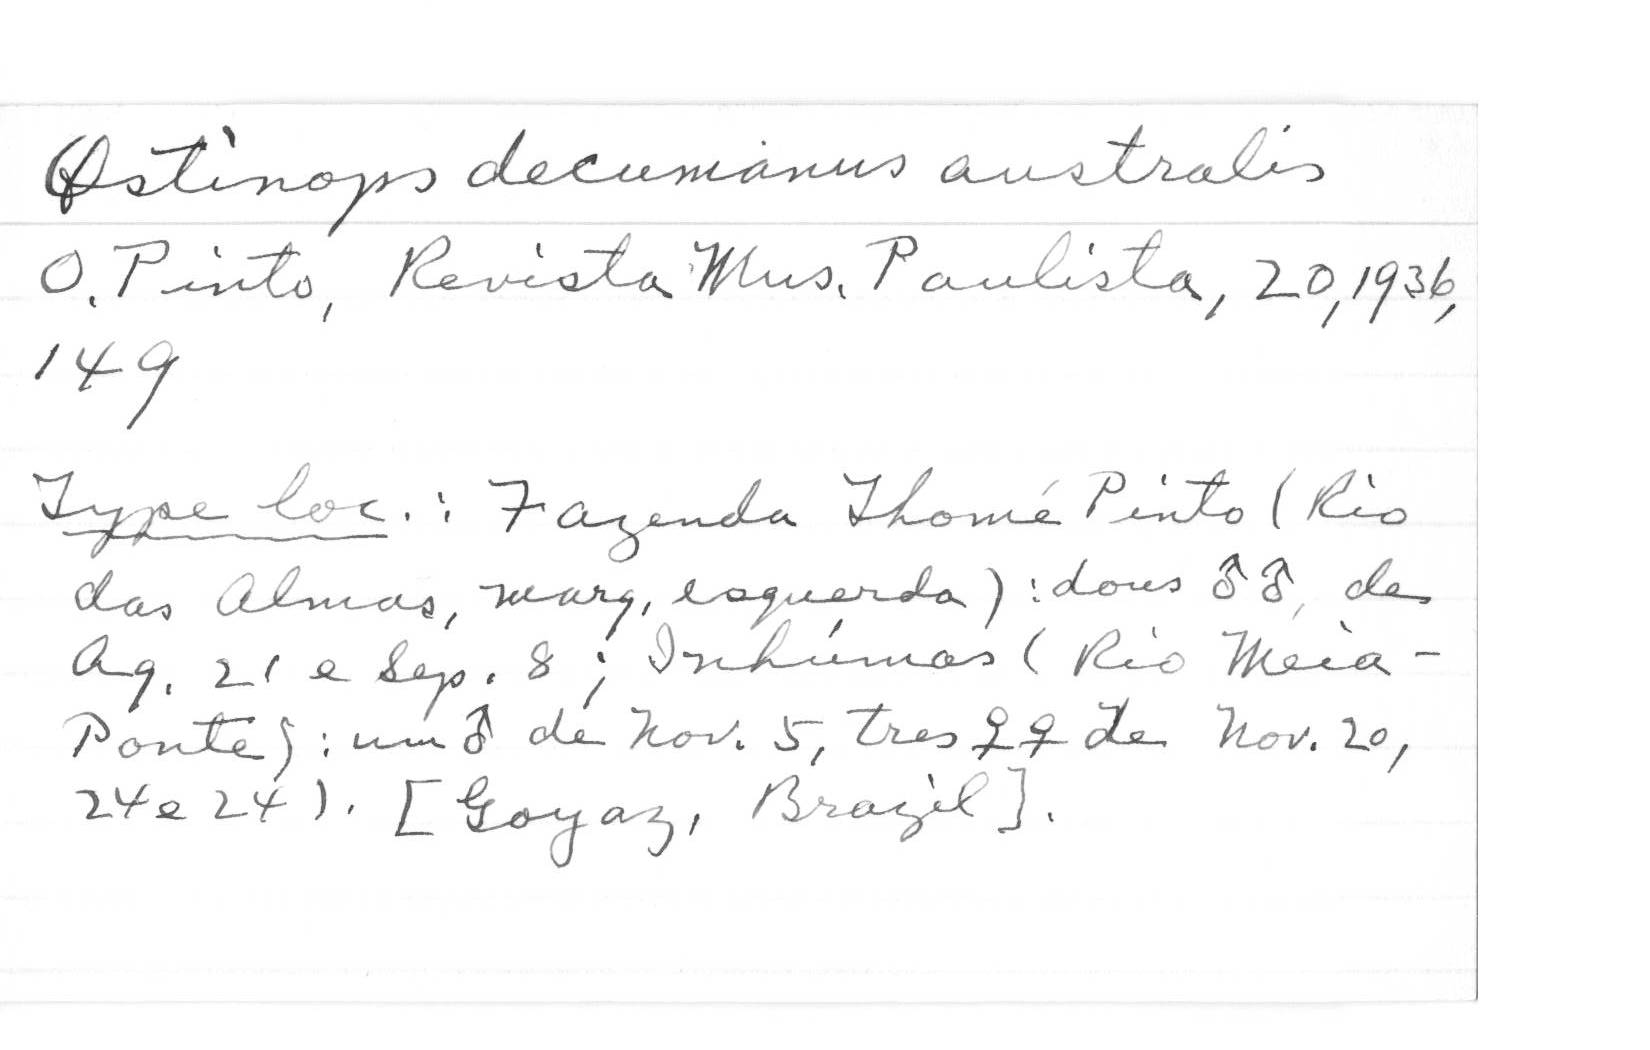 Ostinops decumanus australis
O. Pinto, Revista Mus. Paulista, 20, 1936,
149
Type loc.: Fazenda Thomé Pinto (Rio
das Almas, marg, esquerda): dous ♂♂, de
Ag. 21 e Sep. 8; Inhúmas (Rio Meia-
Ponte): um ♂ de Nov. 5, tres ♀♀ de Nov. 20,
24 e 24). [Goyaz, Brazil].